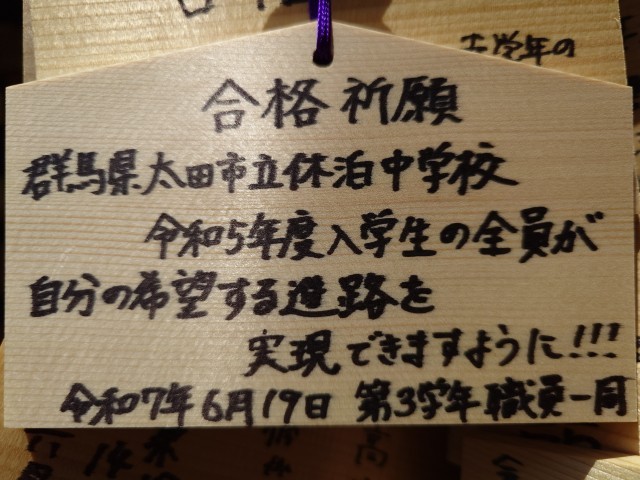 当学年の
合格祈願
群馬県太田市立休泊中学校
令和5年度入学生の全員が
自分の希望する進路を
実現できますように!!!
令和7年6月19日 第3学年職員一同